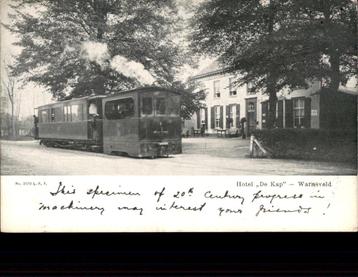 No. 2070 L. P. F.
Hotel „De Kap" — Warnsveld
This specimen of 20th Century progress in
machinery may interest your friends!